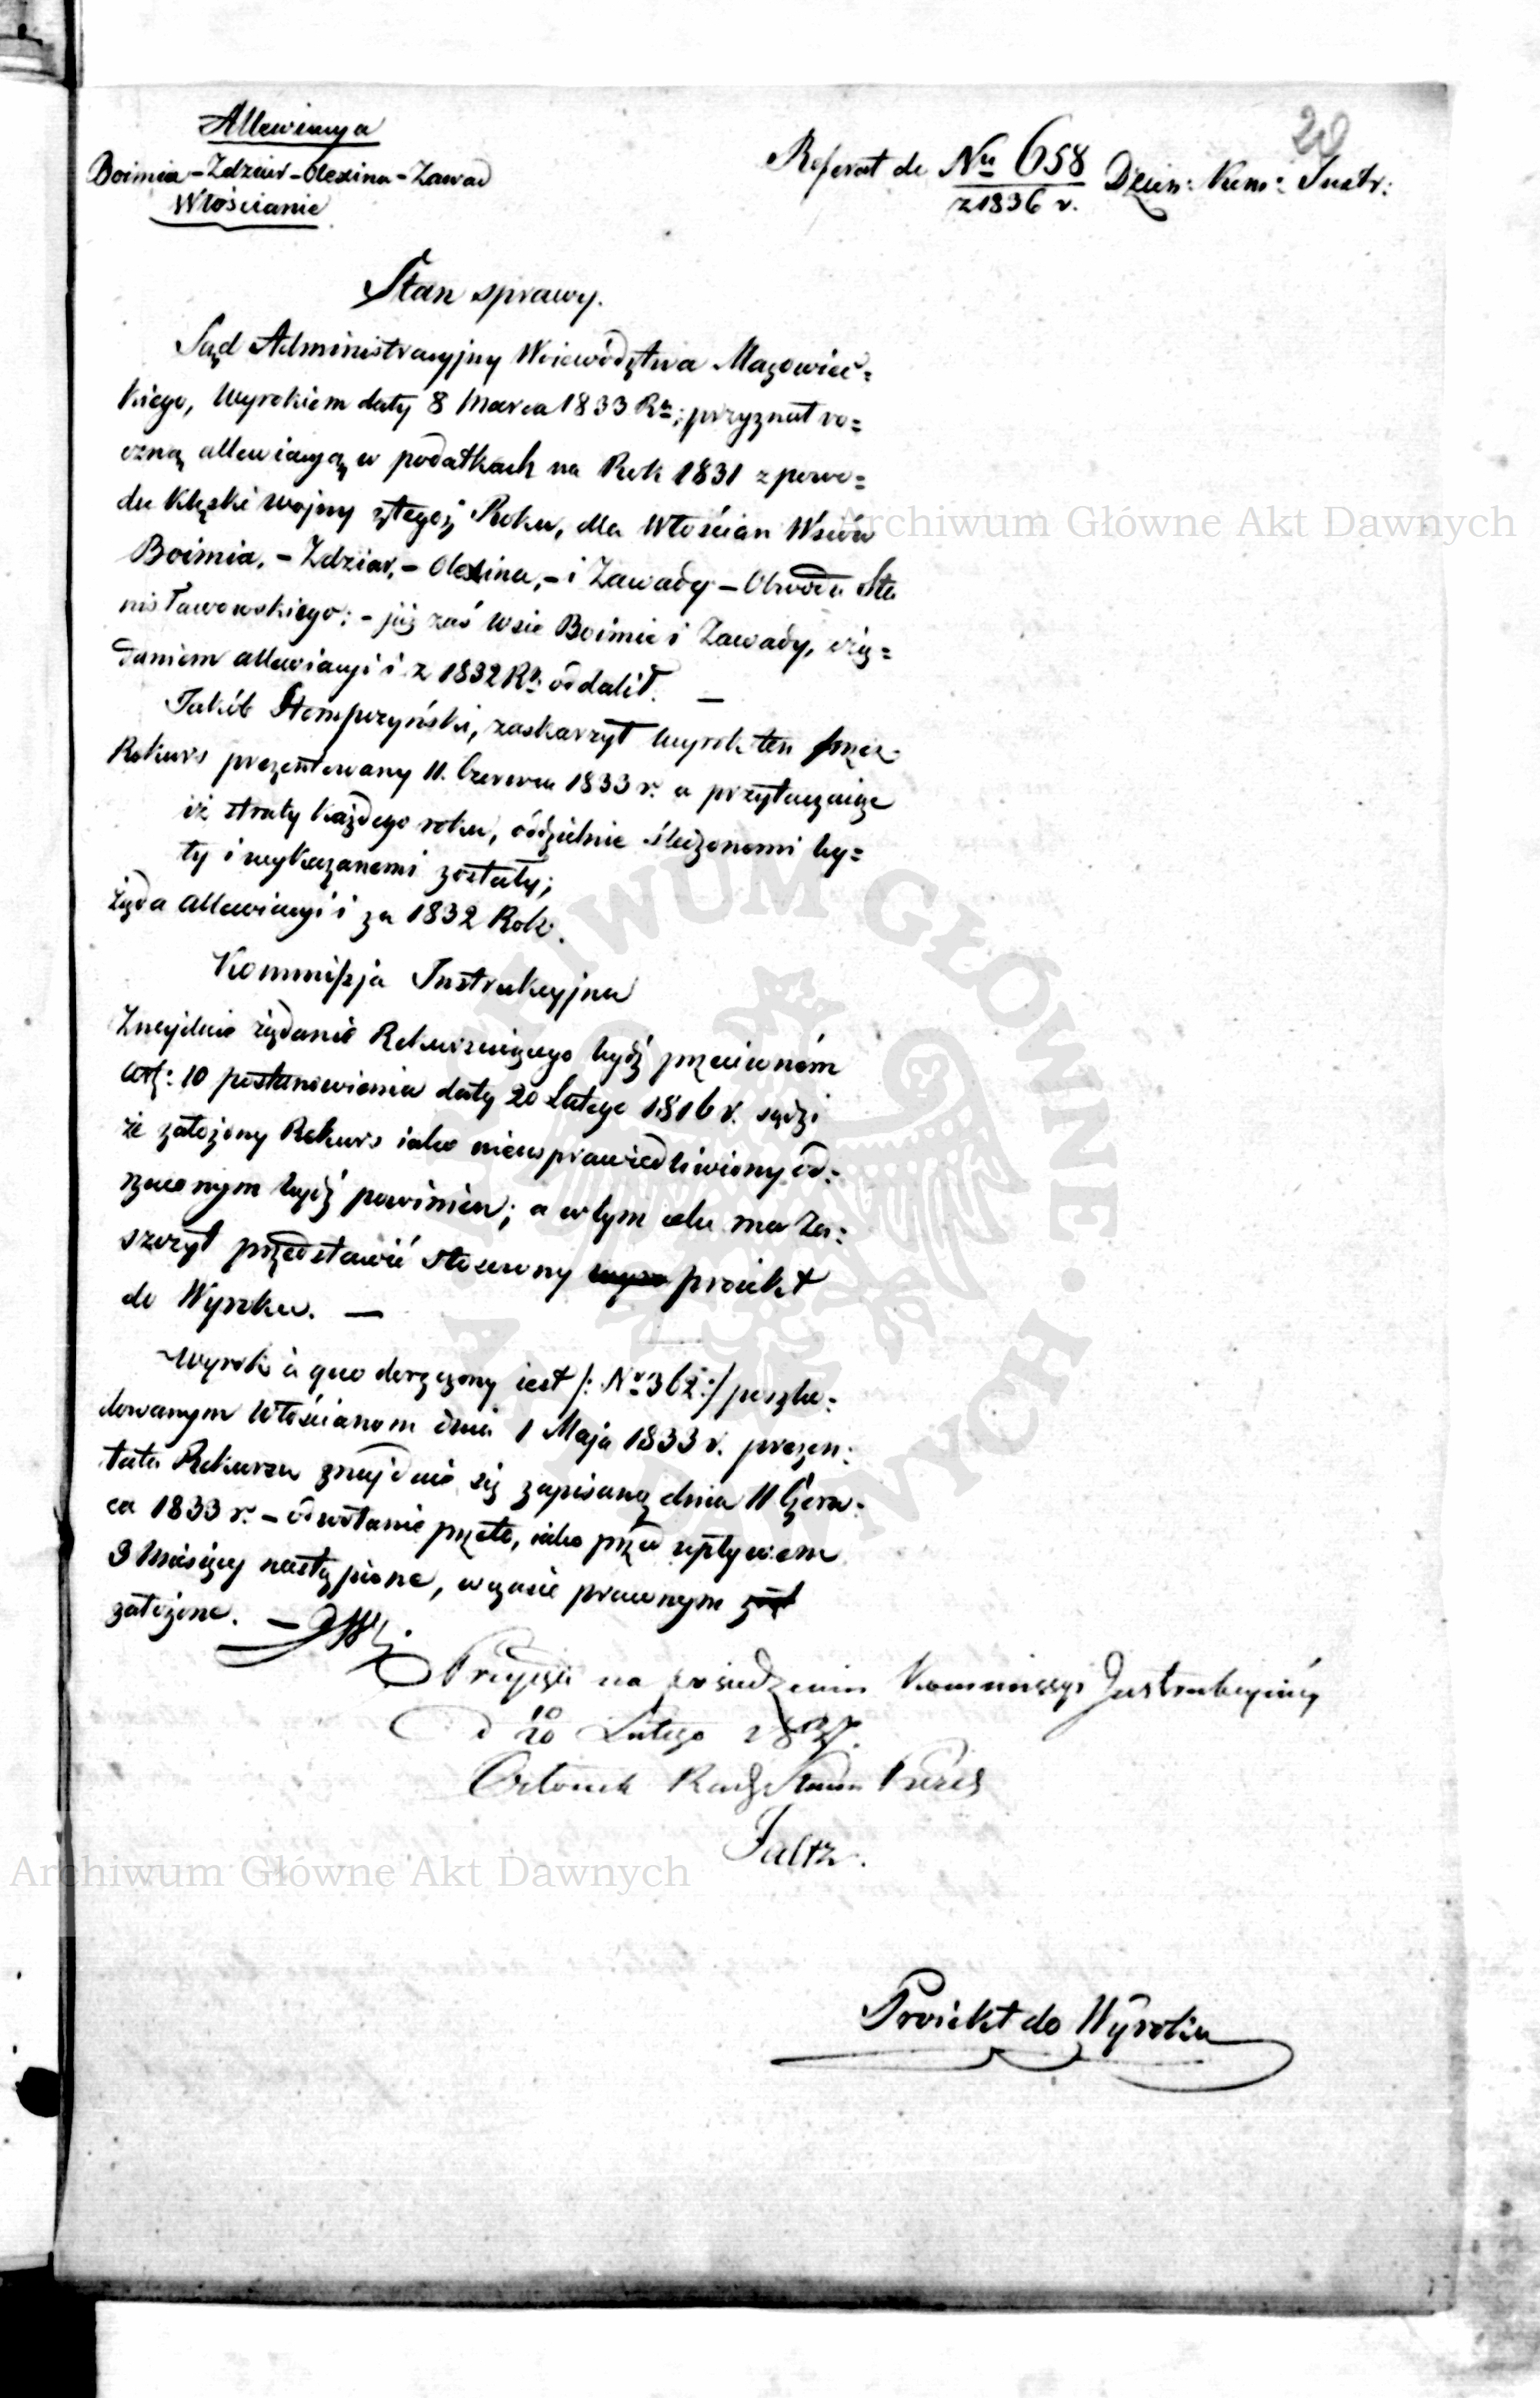 20
Allewiacya
Boimia - Zdziar - Olexina - Zawad
Włościanie
Referat do Nu 658 Dzien: Kom: Instr:
z 1836 r.
Stan sprawy.
Sąd Administracyjny Woiewództwa Mazowiec=
kiego, Wyrokiem daty 8 Marca 1833 Ru; przyznał ro=
czną allewiacyą w podatkach na Rok 1831 z powo=
du klęski wojny z tegoż Roku, dla Włościan Wsiów
Boimia, - Zdziar, - Olexina, - i Zawady - Obwodu Sta
nisławowskiego: - już zaś Wsie Boimie i Zawady, z żą=
daniem allewiacyi i z 1832 Ru oddalił. —
Jakób Stempczyński, zaskarzył wyrok ten przez
Rekurs prezentowany 11. Czerwca 1833 r. a przytaczaiąc
iż straty każdego roku, oddzielnie śledzonemi by=
ły i wykazanemi zostały;
żąda allewiacyi i za 1832 Rok.
Kommissja Instrukcyjna
Znajduie żądanie Rekurruiącego bydź przeciwném
Art: 10 postanowienia daty 20 Lutego 1816 r. sądzi
że założony Rekurs iako nieusprawiedliwiony od=
rzuconym bydź powinien; a w tym celu ma Za=
szczyt przedstawić stosowny proiekt
do Wyroku. —
Wyrok à quo doręczony iest /: No 362 :/ poszko=
dowanym Włościanom dnia 1 Maja 1833 r. prezen=
tata Rekursu znajduie się zapisaną dnia 11 Czerw=
ca 1833 r. - odwołanie przeto, iako przed upływem
3 Miesięcy nastąpione, w czasie prawnym
założone. —
Przyjęto na posiedzeniu Kommissyi Instrukcyiney
d 20 Lutego
Członek Rady Stanu Prezes
Faltz.
Proiekt do Wyroku
Archiwum Główne Akt Dawnych
Archiwum Główne Akt Dawnych
ARCHIWUM GŁÓWNE AKT DAWNYCH